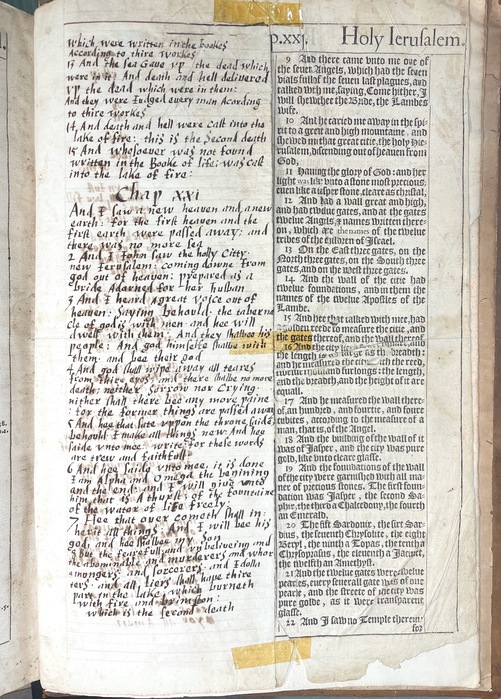 which were written in the bookes
According to thire workes
13 And the sea Gave vp the dead which
were in it And death and hell delivered
vp the dead which were in them:
And they were Iudged every man Acording
to thire workes
14 And death and hell were cast into the
lake of fire: this is the second death
15 And whosoever was not found
written in the Booke of life: was cast
into the lake of fire:
Chap xxi
And I saw a new heaven and a new
earth: for the first heaven and the
first earth were passed away: and
there was no more sea
2 And I Iohn saw the holly Citty
new Ierusalem: coming downe From
god out of heaven: prepared as a
bride Adorned for her husban
3 And I heard a great voice out of
heaven: Saying behould: the taberna
cle of god is with men: and hee will
dwell with them: And they shalbee his
people: And god himselfe shalbe with
them: and bee their god
4 And god shall wipe away all teares
from there eyes: and there shalbe no more
death: neither sorrow nor Crying:
nither shall there bee any more paine
: for the former things are passed away
5 And hee that sate vppon the throne, saide
behould I make all things new: And hee
saide vnto mee: write: for these words
are trew and faithfull
6 And hee saide vnto mee, it is done
I am Alpha and Omega the begining
and the end: and I will give vnto
him that is A thurst: of the fountaine
of the wator of life freely:
7 Hee that over cometh shall in
herit all things: And I will bee his
god, and hee shalbee my son
8 but the fearefull and vnbelieving and
the abominable and murderers and whor
mongers and sorcerers: and Idolla
ters: and all liers shall have thire
part in the lake which burneth
with fire and brimston:
which is the second death
p.xxj. Holy Ierusalem.
9 And there came vnto me one of
the seuen Angels, which had the seuen
vials full of the seuen last plagues, and
talked with me, saying, Come hither, I
will shew thee the Bride, the Lambes
wife.
10 And he caried me away in the spi-
rit to a great and high mountaine, and
shewed me that great citie, the holy Hie-
rusalem, descending out of heauen from
God,
11 Hauing the glory of God: and her
light was like vnto a stone most precious,
euen like a iasper stone, cleare as christal,
12 And had a wall great and high,
and had twelue gates, and at the gates
twelue Angels, & names written there-
on, which are the names of the twelue
tribes of the children of Israel.
13 On the East three gates, on the
North three gates, on the South three
gates, and on the West three gates.
14 And the wall of the citie had
twelue foundations, and in them the
names of the twelue Apostles of the
Lambe.
15 And hee that talked with mee, had
a golden reede to measure the citie, and
the gates thereof, and the wall thereof.
16 And the city
the length is as large as the breadth:
and he measured the citie with the reed,
twelue thousand furlongs: the length,
and the breadth, and the height of it are
equall.
17 And he measured the wall there-
of, an hundred, and fourtie, and foure
cubites, according to the measure of a
man, that is, of the Angel.
18 And the building of the wall of it
was of Iasper, and the city was pure
gold, like vnto cleare glasse.
19 And the foundations of the wall
of the city were garnished with all ma-
ner of precious stones. The first foun-
dation was Iasper, the second Sa-
phir, the third a Chalcedony, the fourth
an Emerald,
20 The fift Sardonix, the sixt Sar-
dius, the seuenth Chrysolite, the eight
Beryl, the ninth a Topas, the tenth a
Chrysoprasus, the eleuenth a Iacinct,
the twelfth an Amethyst.
21 And the twelue gates were twelue
pearles, euery seuerall gate was of one
pearle, and the streete of the city was
pure golde, as it were transparent
glasse.
22 And I saw no Temple therein:
for